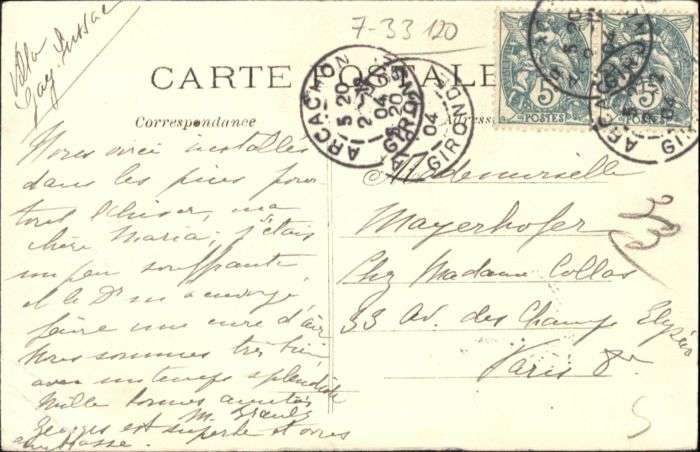 Villa
Gay-Lussac
7-33 120
CARTE POSTALE
Correspondance
Adresse
ARCACHON
5 20
2 -12
04
GIRONDE
ARCACHON
5 20
04
GIRONDE
5
POSTES
5
POSTES
Nous voici installés
dans les pins pour
tout l'hiver, ma
chère Maria; j'étais
un peu souffrante
et le Dr m'a envoyé
faire une cure d'air
Nous sommes très bien
avec un temps splendide
Mille bonnes amitiés
M.
Georges est superbe et vous
embrasse.
Mademoiselle
Mayerhofer
Chez Madame Collas
33 Av. des Champs Elysées
Paris 8e